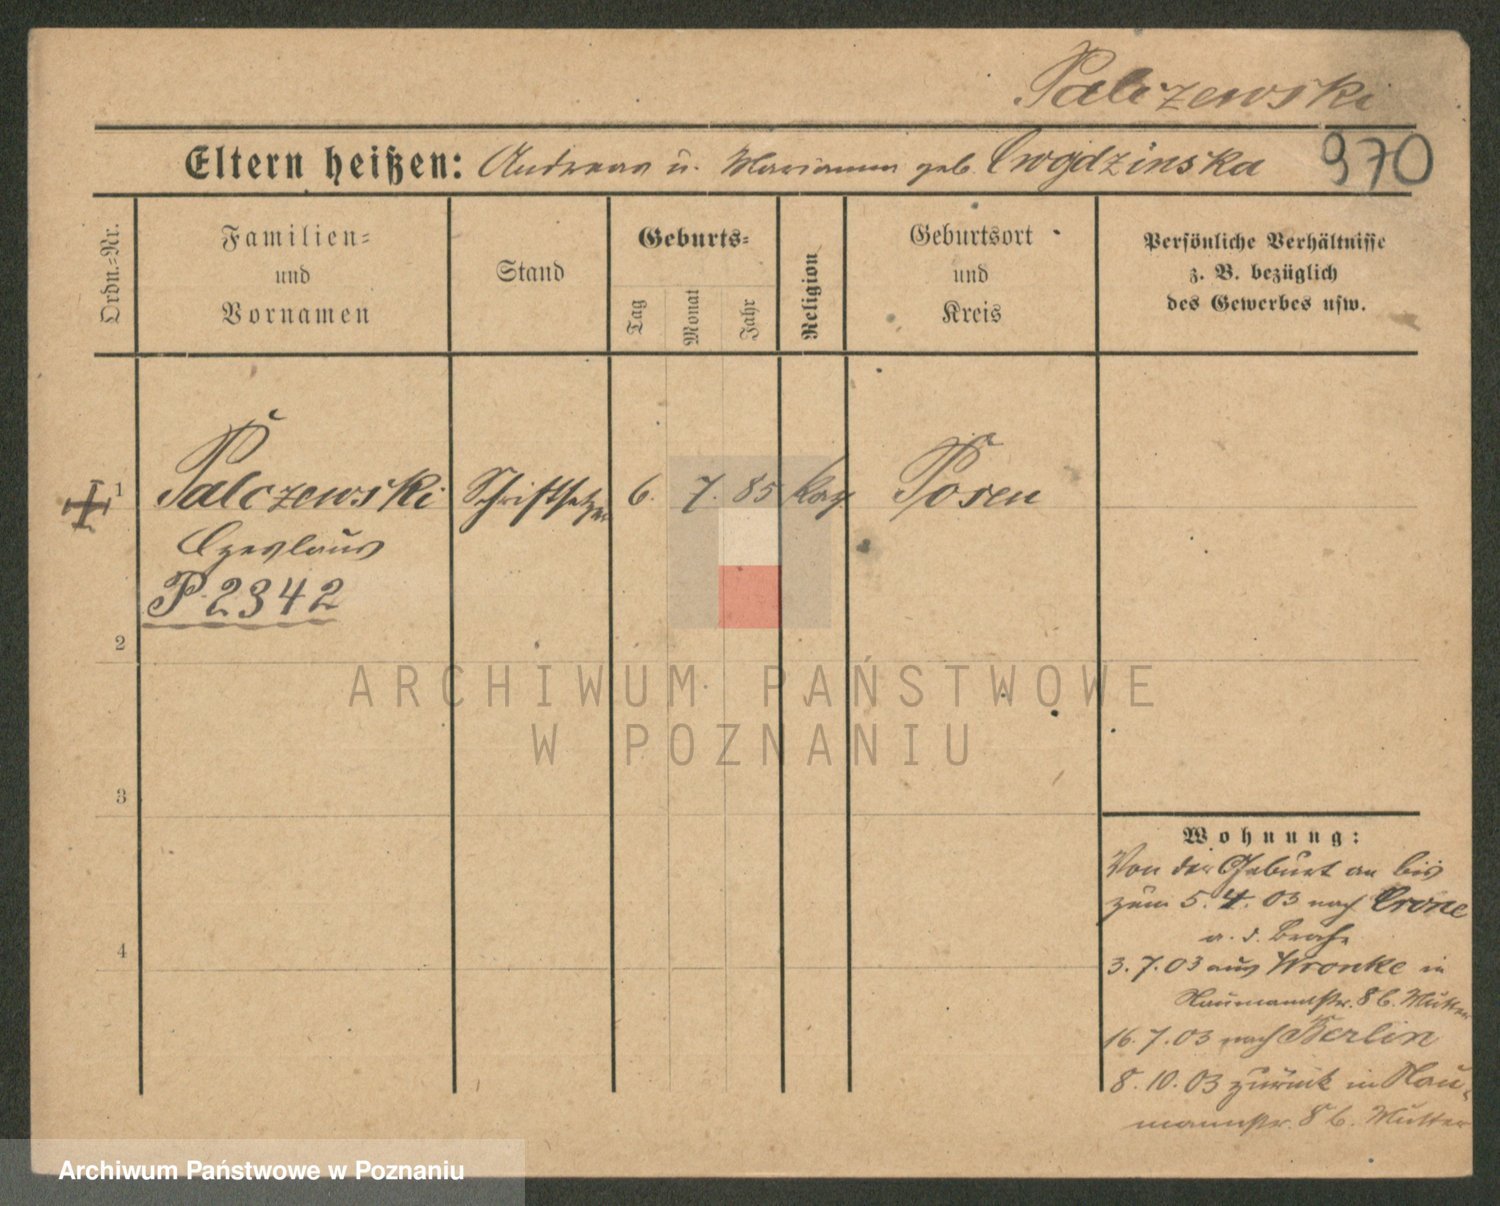 Palczewski
Eltern heißen: Andreas u. Marianna geb. Cwojdzinska
970
Ordn.-Nr.
Familien-
und
Vornamen
Stand
Geburts-
Tag
Monat
Jahr
Religion
Geburtsort
und
Kreis
Persönliche Verhältnisse
z. B. bezüglich
des Gewerbes usw.
1
Palczewski Schriftsetzer 6. 7. 85 kath Posen
Czeslaus
P. 2342
2
3
4
Wohnung:
Von der Geburt an bis
zum 5. 4. 03 nach Crone
a. d. Brahe
3. 7. 03 aus Wronke in
Naumannstr. 8 b. Mutter
16. 7. 03 nach Berlin
8. 10. 03 zurück in Nau-
mannstr. 8 b. Mutter
ARCHIWUM PAŃSTWOWE
W POZNANIU
Archiwum Państwowe w Poznaniu